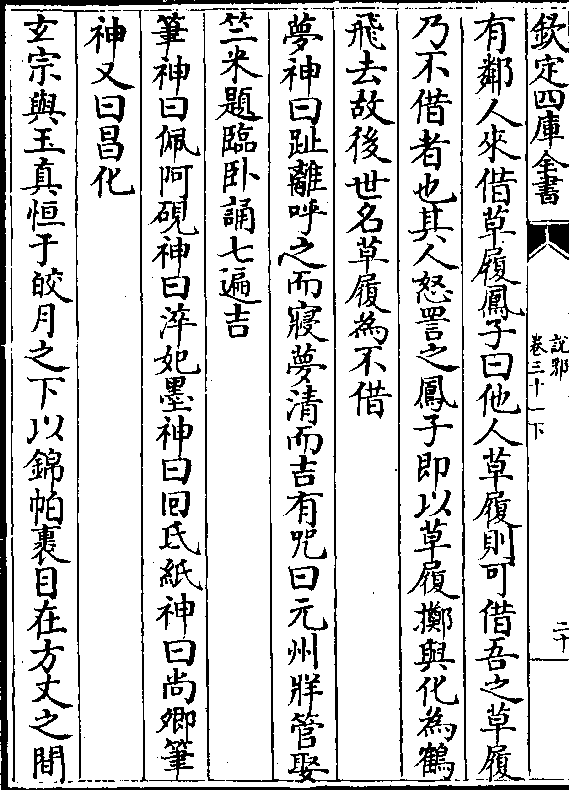 欽定四庫全書
說郛
卷三十一下
二十
有鄰人來借草履鳳子曰他人草履則可借吾之草履
乃不借者也其人怒詈之鳳子即以草履擲與化為鶴
飛去故後世名草履為不借
夢神曰趾離呼之而寢夢清而吉有咒曰元州牂管娶
竺米題臨卧誦七遍吉
筆神曰佩阿硯神曰淬妃墨神曰回氏紙神曰尚卿筆
神又曰昌化
玄宗與玉真恒于皎月之下以錦帕裹目在方丈之間